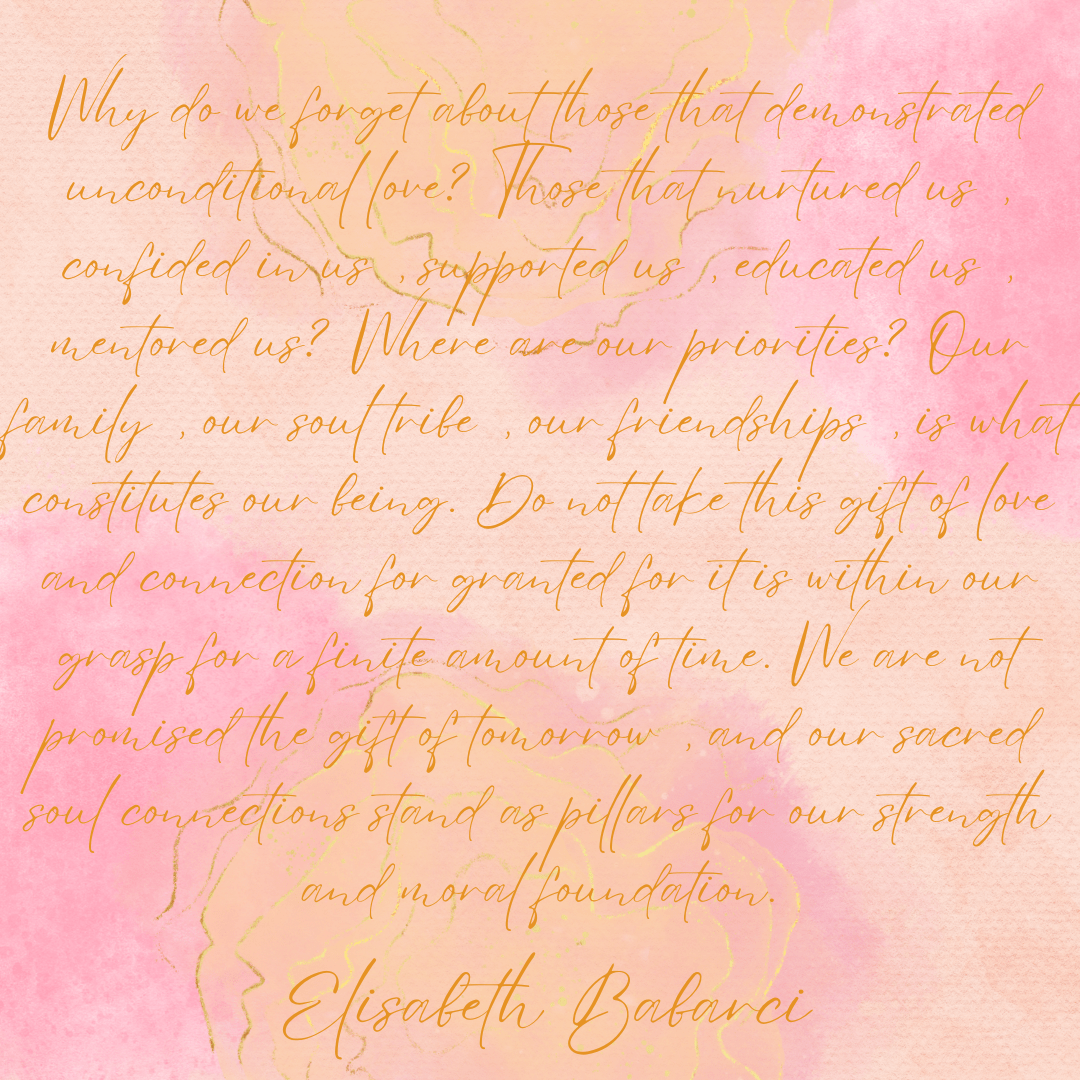 Why do we forget about those that demonstrated
unconditional love? Those that nurtured us ,
confided in us , supported us , educated us ,
mentored us? Where are our priorities? Our
family , our soul tribe , our friendships , is what
constitutes our being. Do not take this gift of love
and connection for granted for it is within our
grasp for a finite amount of time. We are not
promised the gift of tomorrow , and our sacred
soul connections stand as pillars for our strength
and moral foundation.
Elisabeth Babarci